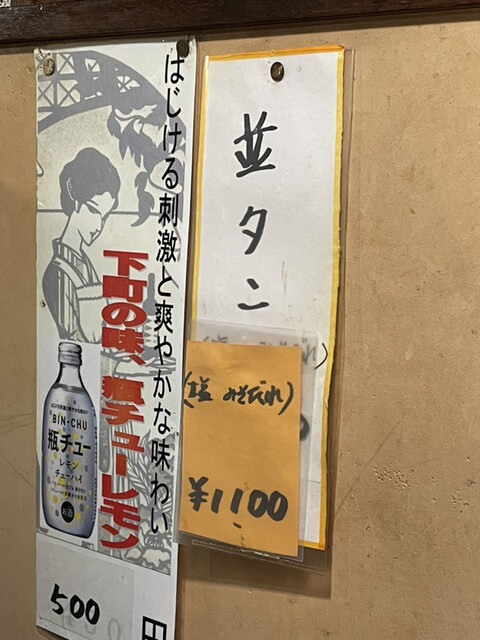 はじける刺激と爽やかな味わい
下町の味、瓶チューレモン
BIN-CHU
瓶チュー
レモン
チューハイ
500
円
並タン
(塩 みそだれ)
¥1100